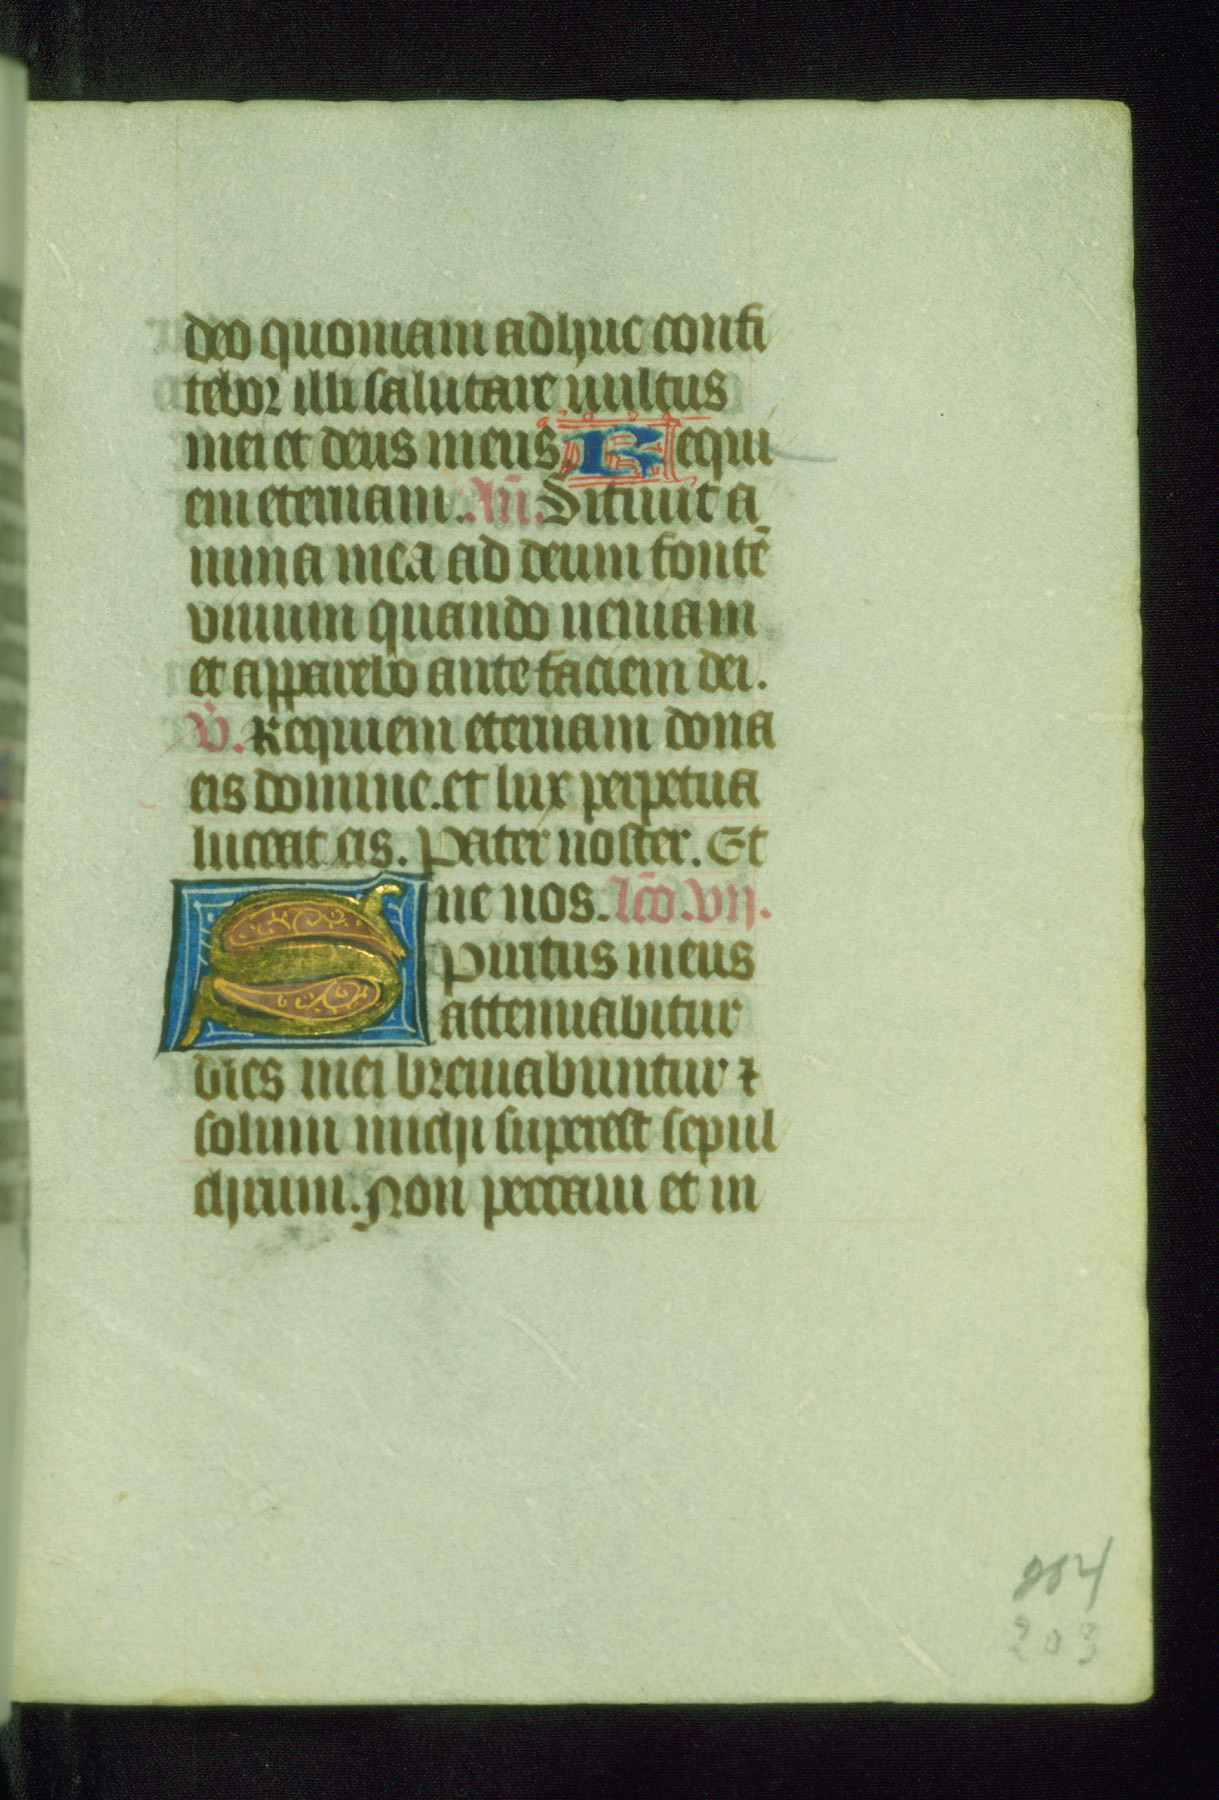 deo quoniam adhuc confi
tebor illi salutare uultus
mei et deus meus Requi
em eternam. Añ. Sitiuit a
nima mea ad deum fontē
viuum quando ueniam
et apparebo ante faciem dei.
V̇. Requiem eternam dona
eis domine. et lux perpetua
luceat eis. Pater noster. Et
ne nos. Lc̄o. vij.
Spiritus meus
attenuabitur
dies mei breuiabuntur ⁊
solum michi superest sepul
chrum. Non peccaui et in
204
203